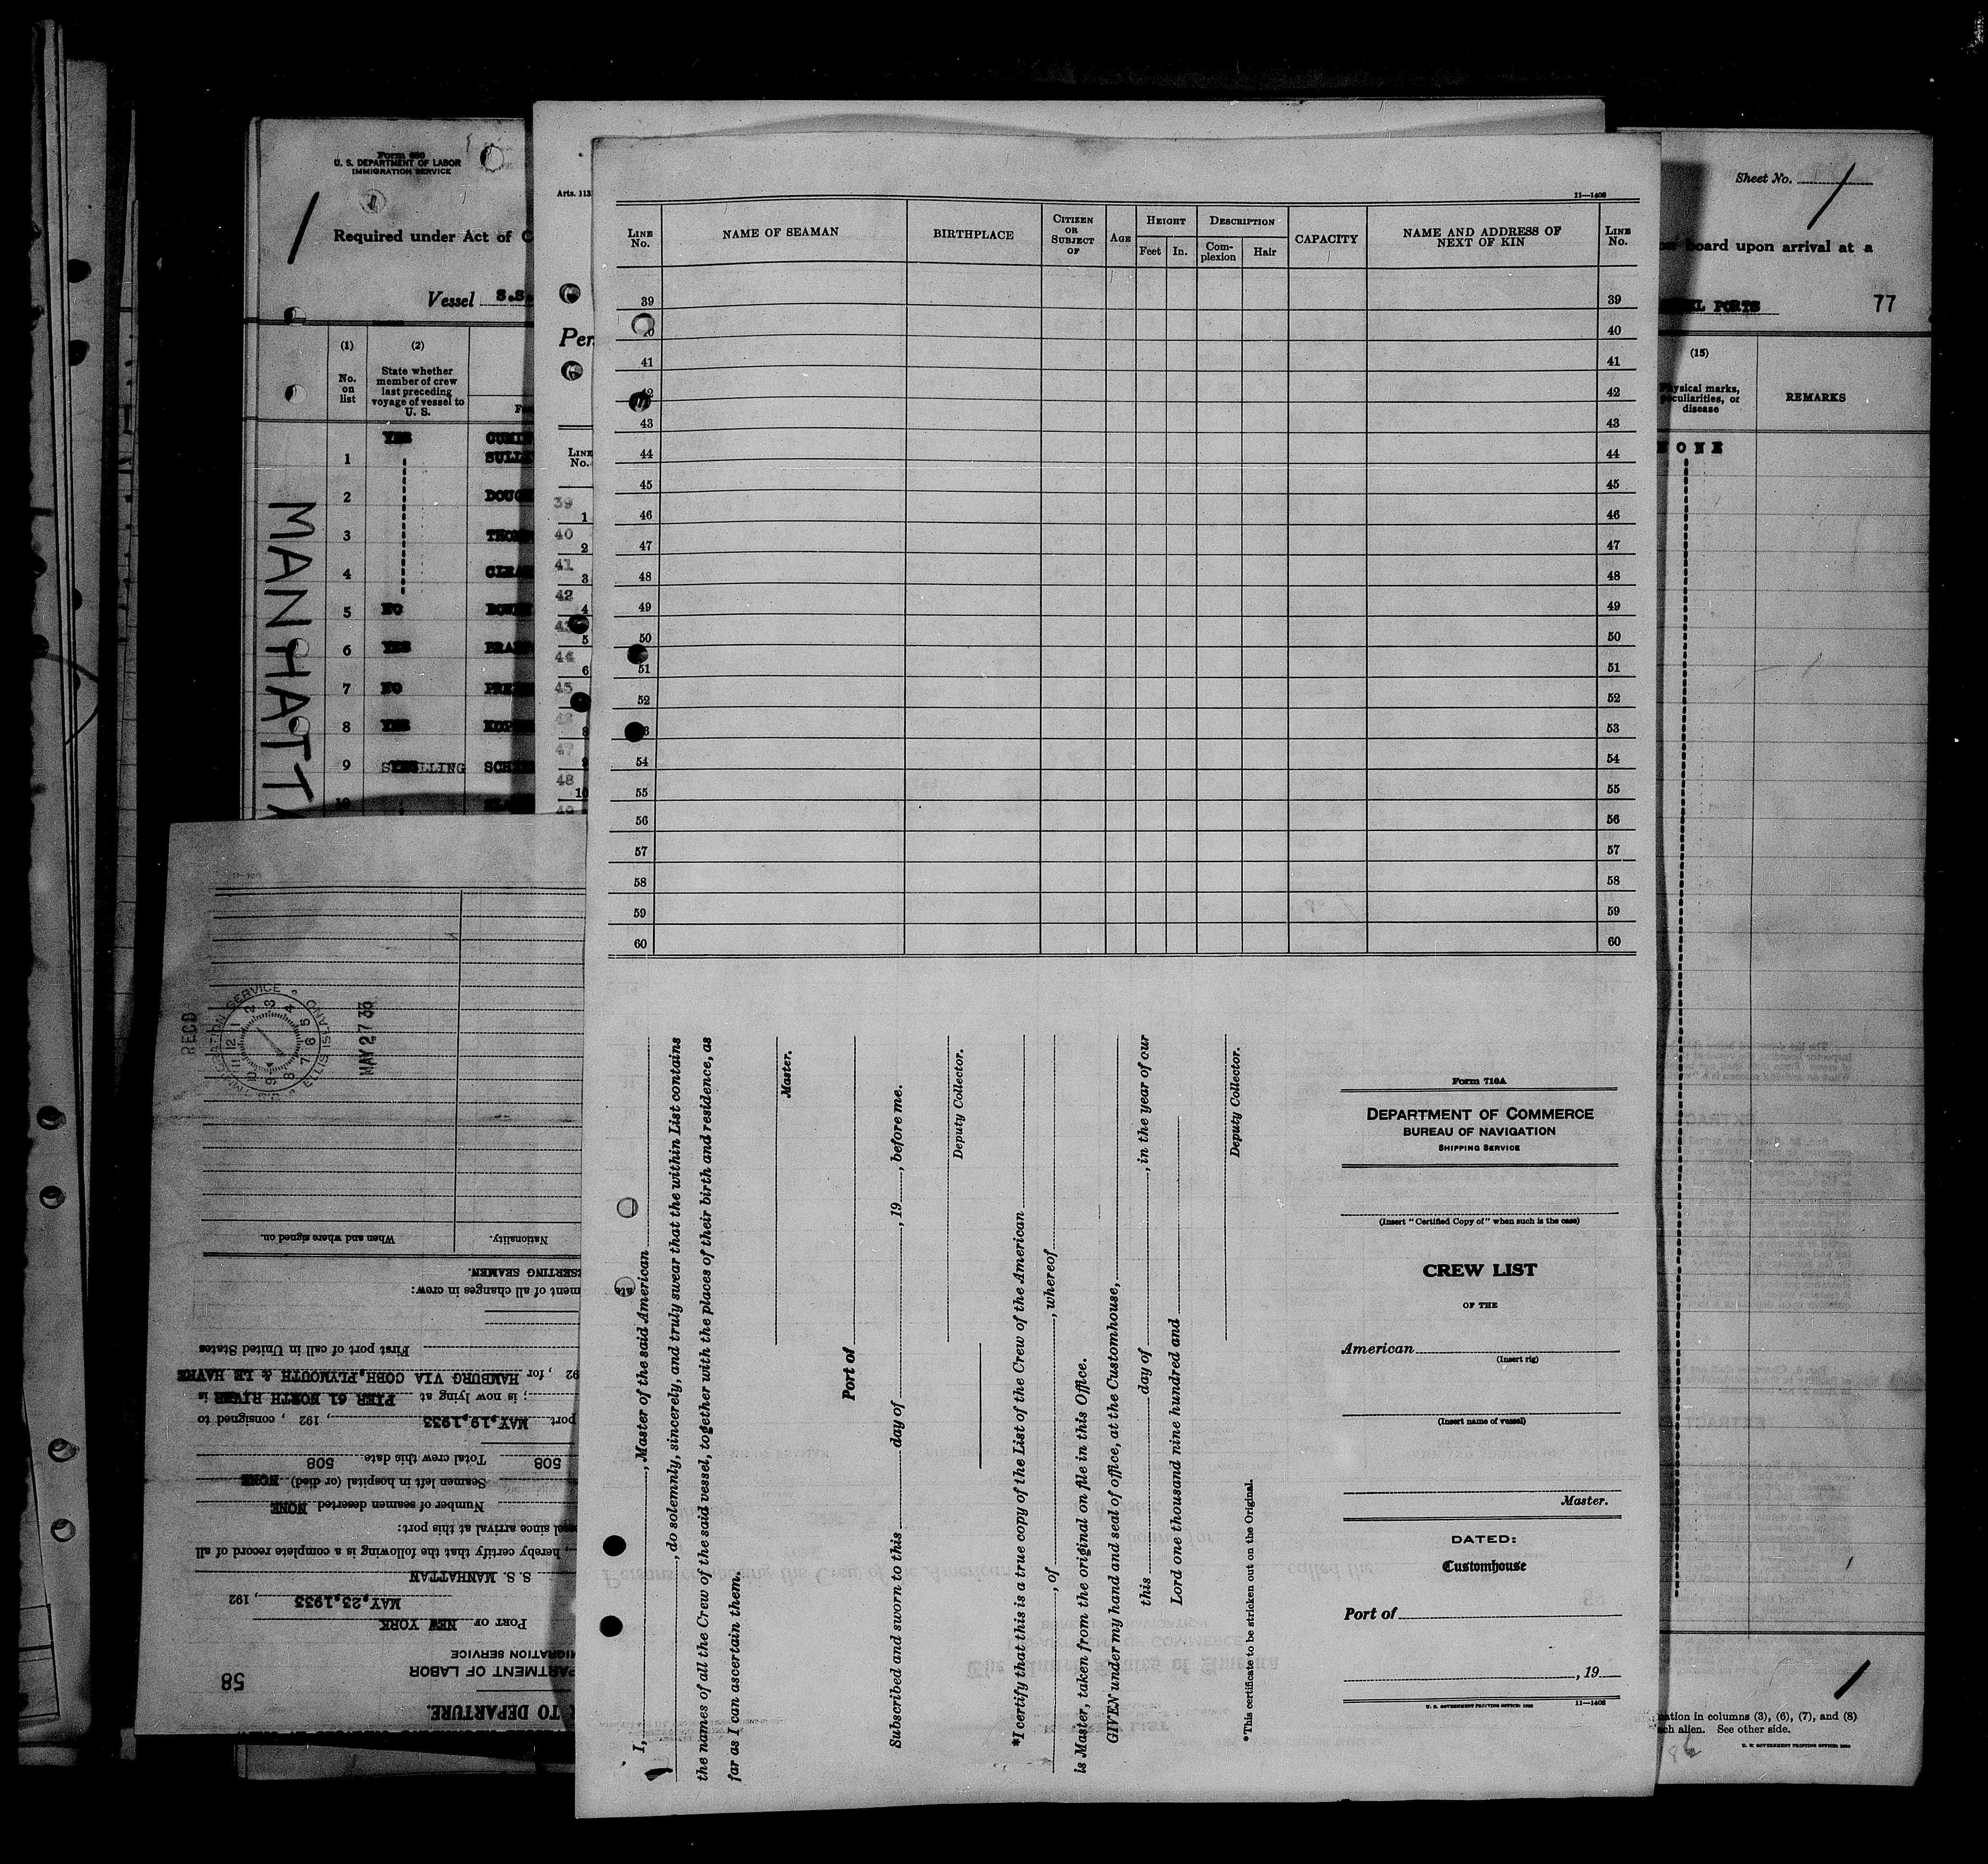 Form 680
U. S. DEPARTMENT OF LABOR
IMMIGRATION SERVICE
Required under Act of C
Vessel S.S.
(1)
No.
on
list
(2)
State whether
member of crew
last preceding
voyage of vessel to
U. S.
YES
1
SULL
2
DOUG
3
4
5 NO
6 YES
7 NO
8 YES
9
10
MANHATT
Arts. 113
Per
LINE
No.
39
1
40
2
41
3
42
4
5
44
6
45
8
47
9
48
10
11—1408
LINE
No.
NAME OF SEAMAN
BIRTHPLACE
CITIZEN
OR
SUBJECT
OF
AGE
HEIGHT
Feet In.
DESCRIPTION
Com-
plexion
Hair
CAPACITY
NAME AND ADDRESS OF
NEXT OF KIN
LINE
No.
39 39
40
41 41
42 42
43 43
44 44
45 45
46 46
47 47
48 48
49 49
50 50
51 51
52 52
53
54 54
55 55
56 56
57 57
58 58
59 59
60 60
I, , Master of the said American
, do solemnly, sincerely, and truly swear that the within List contains
the names of all the Crew of the said vessel, together with the places of their birth and residence, as
far as I can ascertain them.
Master.
Port of
Subscribed and sworn to this day of , 19 , before me.
Deputy Collector.
*I certify that this is a true copy of the List of the Crew of the American
, of , whereof
is Master, taken from the original on file in this Office.
GIVEN under my hand and seal of office, at the Customhouse,
this day of , in the year of our
Lord one thousand nine hundred and
Deputy Collector.
*This certificate to be stricken out on the Original.
Form 710A
DEPARTMENT OF COMMERCE
BUREAU OF NAVIGATION
SHIPPING SERVICE
(Insert "Certified Copy of" when such is the case)
CREW LIST
OF THE
American
(Insert rig)
(Insert name of vessel)
Master.
DATED:
Customhouse
Port of
, 19
U. S. GOVERNMENT PRINTING OFFICE: 11—1408
Sheet No. 1
on board upon arrival at a
PORTS
77
(15)
Physical marks,
peculiarities, or
disease
REMARKS
NONE
mation in columns (3), (6), (7), and (8)
ch alien. See other side.
U. S. GOVERNMENT PRINTING OFFICE
58
TO DEPARTURE.
PARTMENT OF LABOR
MIGRATION SERVICE
PORT OF NEW YORK
MAY,23,1933 , 192
S. S. MANHATTAN
, hereby certify that the following is a complete record of all
sel since arrival at this port:
Number of seamen deserted NONE
Seamen left in hospital (or died) NONE
508 Total crew this date 508
port MAY,19,1933 , 192 , consigned to
; is now lying at PIER 61 NORTH RIVER is
92 , for HAMBURG VIA COBH,PLYMOUTH & LE HAVRE
First port of call in United States
ment of all changes in crew:
ESERTING SEAMEN.
Nationality.
When and where signed on.
RECD
IMMIGRATION SERVICE • ELLIS ISLAND
1 2 3 4 5 6 7 8 9 10 11 12
MAY 27 33